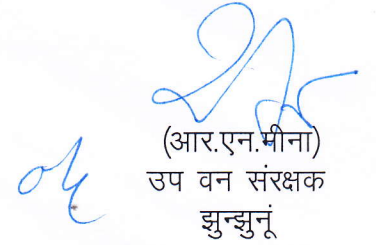 (आर.एन.मीना)
उप वन संरक्षक
झुन्झुनूं